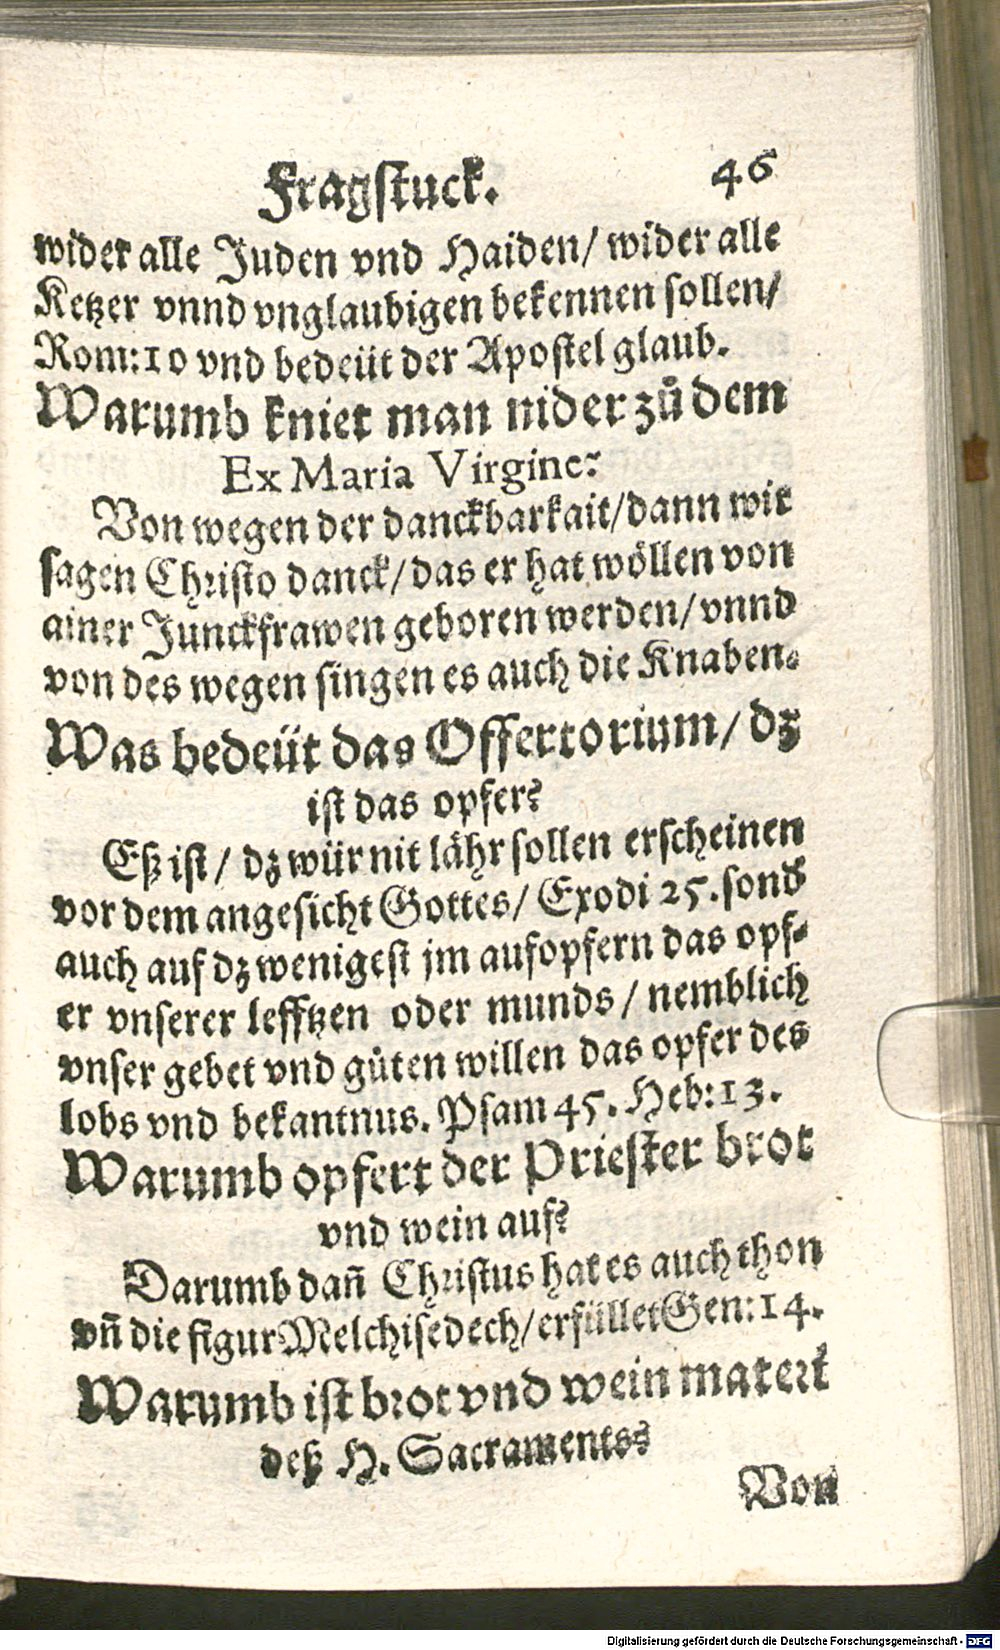 Fragstuck. 46
wider alle Juden vnd Haiden/ wider alle
Ketzer vnnd vnglaubigen bekennen sollen/
Rom:10 vnd bedeüt der Apostel glaub.
Warumb kniet man nider zů dem
Ex Maria Virgine?
Von wegen der danckbarkait/dann wir
sagen Christo danck/das er hat wöllen von
ainer Junckfrawen geboren werden/vnnd
von des wegen singen es auch die Knaben.
Was bedeüt das Offertorium/ dz
ist das opfer?
Eß ist/ dz wür nit lähr sollen erscheinen
vor dem angesicht Gottes/ Exodi 25. sond
auch auf dz wenigest jm aufopfern das opf-
er vnserer lefftzen oder munds/ nemblich
vnser gebet vnd gůten willen das opfer des
lobs vnd bekantnus. Psam 45. Heb:13.
Warumb opfert der Priester brot
vnd wein auf?
Darumb dañ Christus hat es auch thon
vñ die figur Melchisedech/erfüllet Gen:14.
Warumb ist brot vnd wein
deß H. Sacraments?
Von
Digitalisierung gefördert durch die Deutsche Forschungsgemeinschaft - DFG